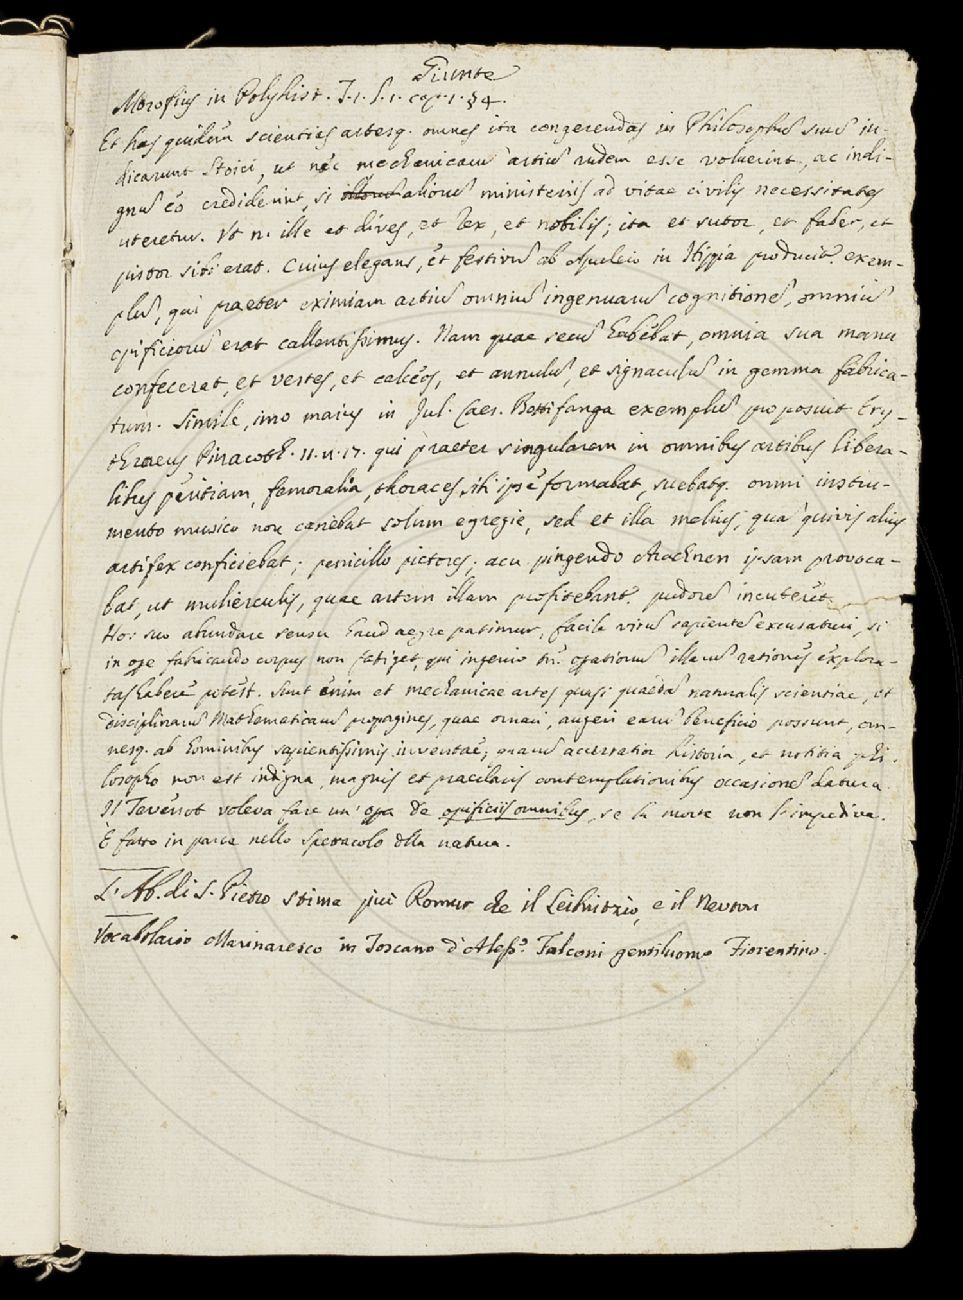 Giunte
Morofius in Polyhist. T. 1. l. 1. cap. 1. §4.
Et has quidem scientias artesq. omnes ita congerendas in Philosophū suū in-
dicarunt Stoici, ut nec mechanicarū artiū rudem esse voluerint, ac indi-
gnū eo crediderint, si illorū aliorū ministeriis ad vitae civilis necessitates
uteretur. Ut n. ille et dives, et Rex, et nobilis; ita et sutor, et faber, et
pistor sibi erat. Cuius elegans, et festivū ab Apuleio in Hippia producit. exem-
plū, qui praeter eximiam artiū omniū ingenuarū cognitionē, omniū
opificiorū erat callentissimus. Nam quae secū habebat, omnia sua manu
confecerat, et vestes, et calceos, et annulū, et signaculū in gemma fabrica-
tum. Simile, imo maius in Jul. Caes. Bottifanga exemplū proposuit Ery-
thraeus Pinacoth. II. n. 17. qui praeter singularem in omnibus artibus libera-
libus peritiam, femoralia, thoraces sibi ipse formabat, suebatq. omni instru-
mento musico non canebat solum egregie, sed et illa melius, quā quivis alius
artifex conficiebat; penicillo pictores; acu pingendo Arachnen ipsam provoca-
bat, ut mulierculis, quae artem illam profitebant. pudorē incuteret.
Hos suo abundare sensu haud aegre patimur, facile virū sapientē excusaturi, si
in ope fabricando corpus non fatiget, qui ingenio tn. opationū illarū rationes explora-
tas habere potest. Sunt enim et mechanicae artes quasi quaedā naturalis scientiae, et
disciplinarū Mathematicarū propagines, quae ornari, augeri earū beneficio possunt, om-
nesq. ab hominibus sapientissimis inventae; quarū accuratior historia, et notitia phi-
losopho non est indigna, magnis et praeclaris contemplationibus occasionē datura.
Il Tevenot voleva fare un' opa de opificiis omnibus, se la morte non l'impediva.
È fatto in parte nello Spettacolo dlla natura.
L'Ab. di S. Pietro stima più Romur che il Leibnitzio, e il Neuton
Vocabolario Marinaresco in Toscano d'Aless.o Falconi gentiluomo Fiorentino.